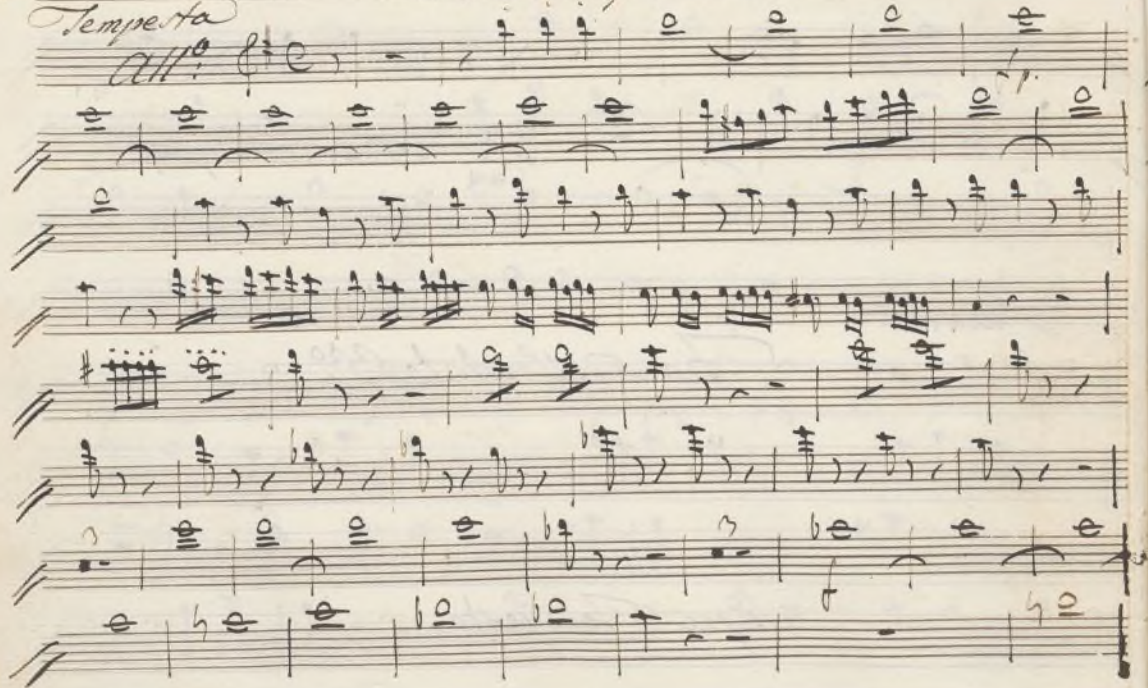 Tempesta
All.º
fp.
3
3
f